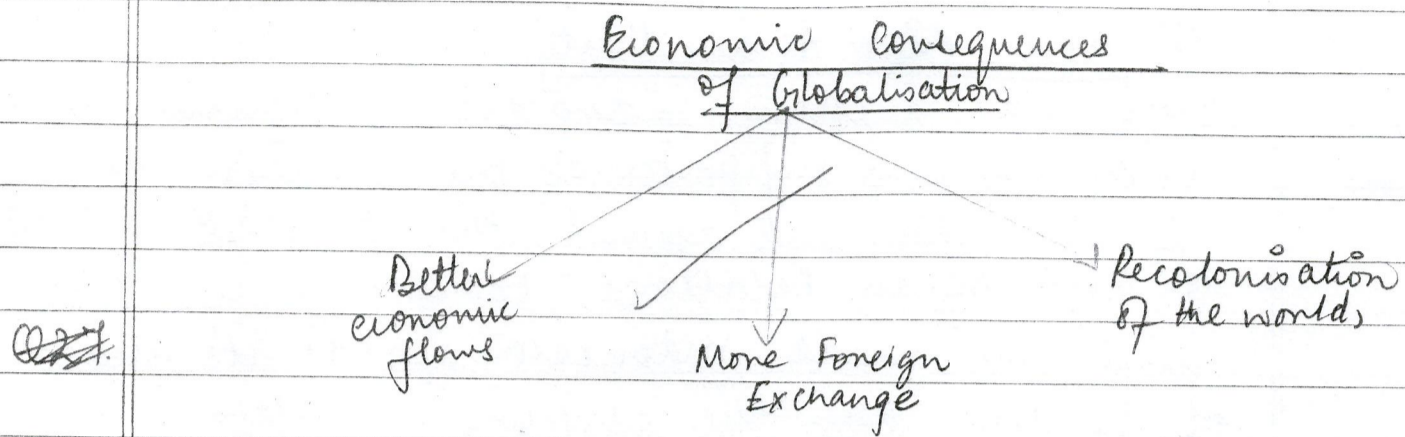 Economic Consequences
of Globalisation
Better
economic
flows
More Foreign
Exchange
Recolonisation
of the world,